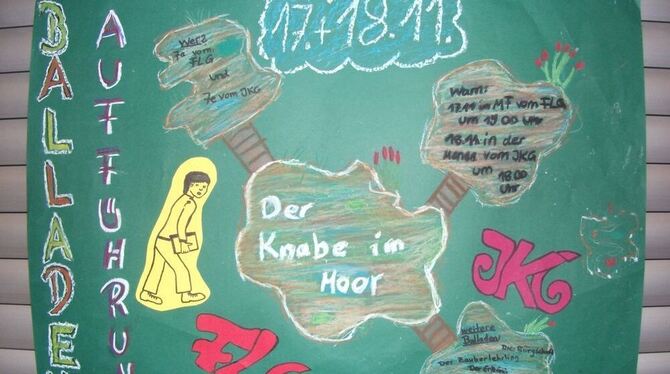 BALLADE
AUFFÜHRU
17.+18.11.
Wer?
7e vom
FLG
und
7e vom JKG
Wann:
17.11 im MF vom FLG
um 19 00 Uhr
18.11 in der
vom JKG
um 18 00
Uhr
Der
Knabe im
Moor
JKG
FLG
weitere
Balladen
Die Bürgschaft
Der Zauberlehrling
Der Erlkönig